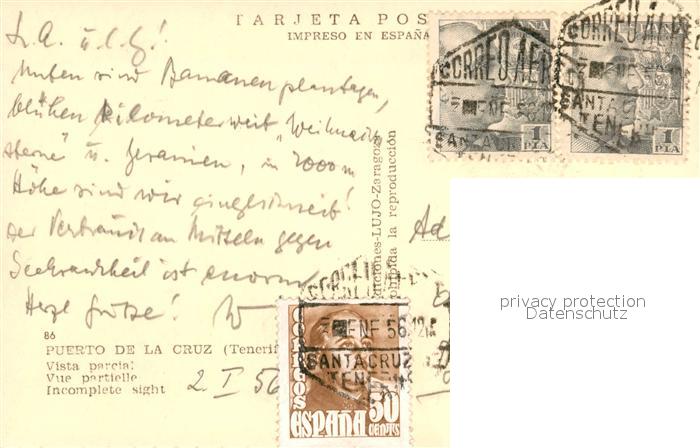 TARJETA POS
IMPRESO EN ESPAÑA
L. A. u. l. G!
Unten sind Bananenplantagen,
blühen kilometerweit "Weihnachts
sterne" u. Geranien, in 2000 m
Höhe sind wir eingeschneit!
Der Verbrauch an Mitteln gegen
Seekrankheit ist enorm
Herzl Grüsse! W
86
PUERTO DE LA CRUZ (Tenerif
Vista parcial
Vue partielle
Incomplete sight
2. I. 56
diciones-LUJO-Zaragoza
ohibida la reproducción
Ad
CORREO AER
ENE 56
SANTACRUZ
TENER
1
PTA
CORREO AER
ENE
SANTACRUZ
TENERI
1
PTA
ESPAÑA
CORREO
ENE 56 12
SANTACRUZ
TENER
CORREOS
ESPAÑA 50
CENTS
privacy protection
Datenschutz